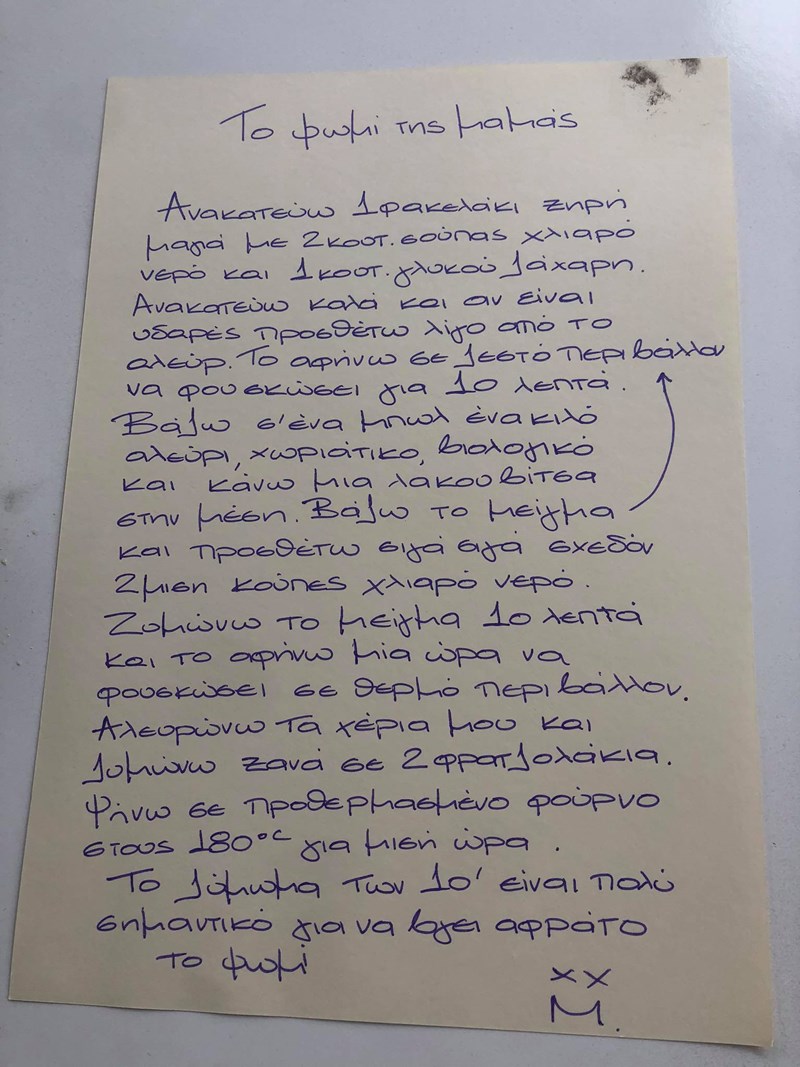 Το ψωμί της μαμάς
Ανακατεύω 1 φακελάκι ξηρή
μαγιά με 2 κουτ. σούπας χλιαρό
νερό και 1 κουτ. γλυκού ζάχαρη.
Ανακατεύω καλά και αν είναι
υδαρές προσθέτω λίγο από το
αλεύρ. Το αφήνω σε ζεστό περιβάλλον
να φουσκώσει για 10 λεπτά.
Βάζω σ'ένα μπωλ ένα κιλό
αλεύρι, χωριάτικο, βιολογικό
και κάνω μια λακουβίτσα
στην μέση. Βάζω το μείγμα
και προσθέτω σιγά σιγά σχεδόν
2μιση κούπες χλιαρό νερό.
Ζυμώνω το μείγμα 10 λεπτά
και το αφήνω μία ώρα να
φουσκώσει σε θερμό περιβάλλον.
Αλευρώνω τα χέρια μου και
ζυμώνω ξανά σε 2 φρατζολάκια.
Ψήνω σε προθερμασμένο φούρνο
στους 180°C για μισή ώρα.
Το ζύμωμα των 10' είναι πολύ
σημαντικό για να βγει αφράτο
το ψωμί
xx
M.